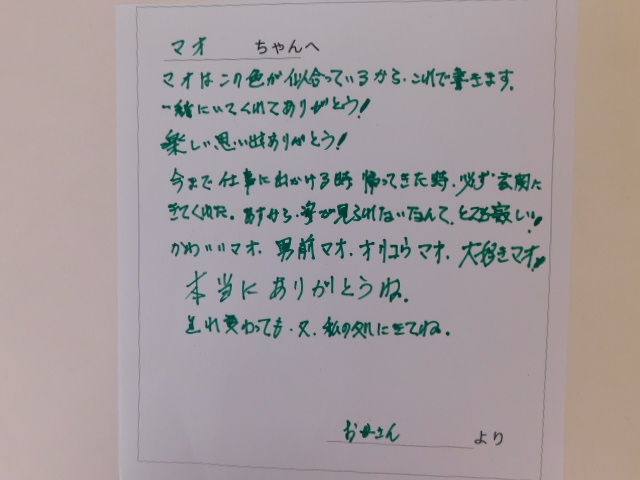 マオ ちゃんへ
マオはこの色が似合っているから、これで書きます。
一緒にいてくれてありがとう!
楽しい思い出ありがとう!
今まで仕事に出かける時 帰ってきた時、必ず玄関に
きてくれた。あすから、姿が見られないなんて、とても寂しい!!
かわいいマオ、男前マオ、オリコウマオ、大好きマオ!!
本当にありがとうね。
生れ変わっても、又、私の処にきてね。
お母さん より